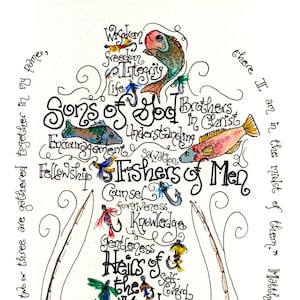 Wisdom
freedom
Integrity
Life
Sons of God
Brothers
in Christ
Understanding
Encouragement
Salvation
Fellowship
Fishers of Men
Counsel
forgiveness
Knowledge
Gentleness
Heirs of
the
Self
Control
two or three are gathered together in my name,
there I am in the midst of them."